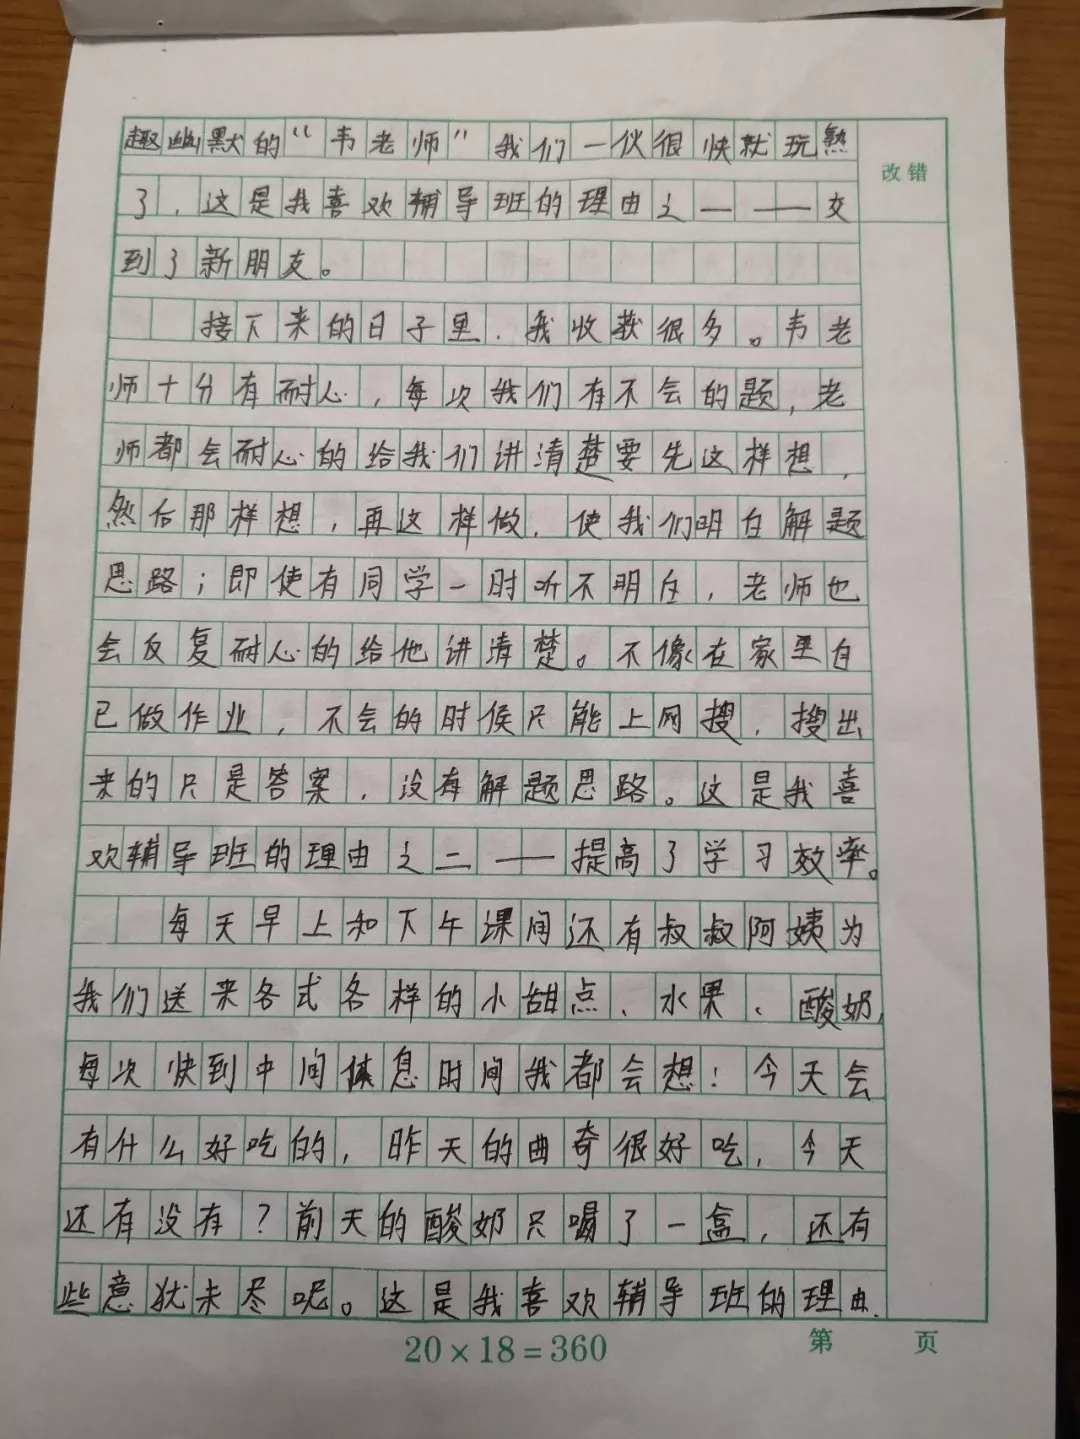 趣幽默的“韦老师”我们一伙很快就玩熟
改错
了，这是我喜欢辅导班的理由之一——交
到了新朋友。
接下来的日子里，我收获很多。韦老
师十分有耐心，每次我们有不会的题，老
师都会耐心的给我们讲清楚要先这样想，
然后那样想，再这样做，使我们明白解题
思路；即使有同学一时听不明白，老师也
会反复耐心的给他讲清楚。不像在家里自
已做作业，不会的时侯只能上网搜，搜出
来的只是答案，没有解题思路。这是我喜
欢辅导班的理由之二——提高了学习效率。
每天早上和下午课间还有叔叔阿姨为
我们送来各式各样的小甜点、水果、酸奶，
每次快到中间休息时间我都会想！今天会
有什么好吃的，昨天的曲奇很好吃，今天
还有没有？前天的酸奶只喝了一盒，还有
些意犹未尽呢。这是我喜欢辅导班的理由
20×18=360
第 页